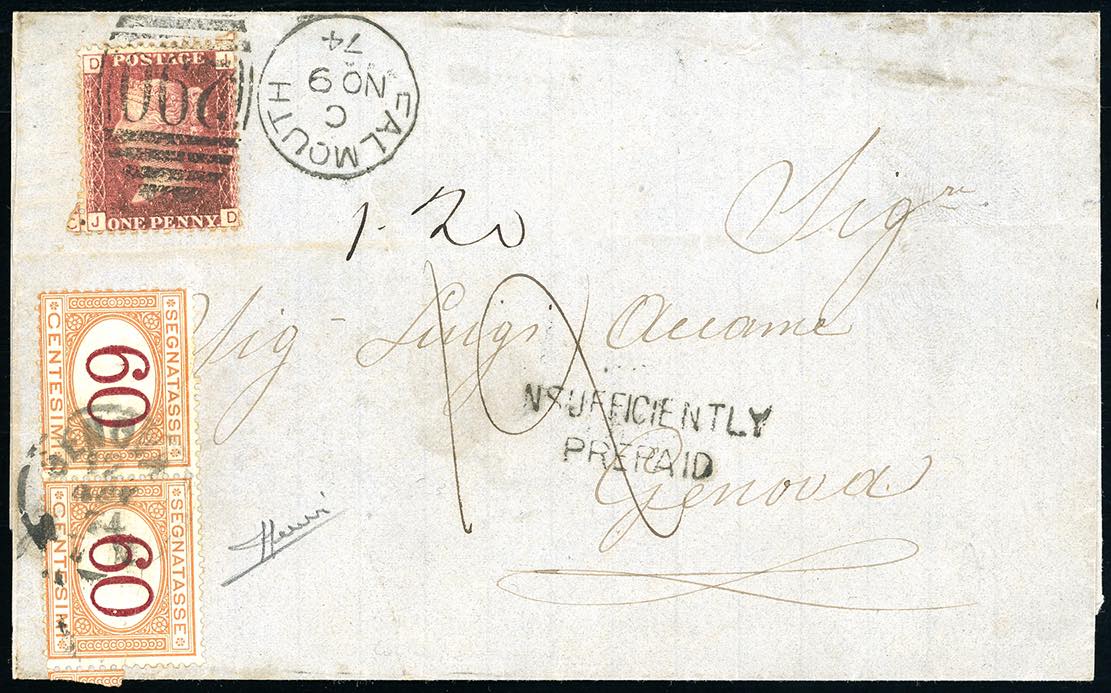 D
POSTAGE
200
C J ONE PENNY D
FALMOUTH
C
NO 9
74
1.20
Sigre
Sig Luigi Accame
12
NSUFFICIENTLY
PREPAID
Genova
SEGNATASSE
60
CENTESIMI
GENOVA
SEGNATASSE
60
CENTESIMI